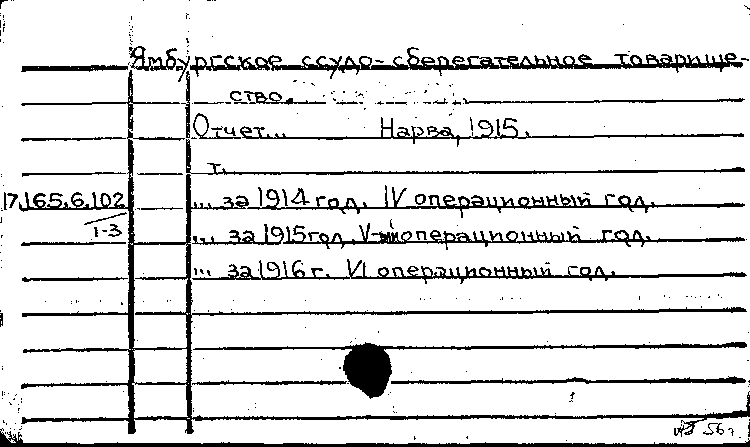 Ямбургское ссудо-сберегательное товарище-
ство.
Отчет... Нарва, 1915.
т.
17.165.6.102 ... за 1914 год. IV операционный год.
1-3 ... за 1915 год. V-ый операционный год.
... за 1916 г. VI операционный год.
56 г.